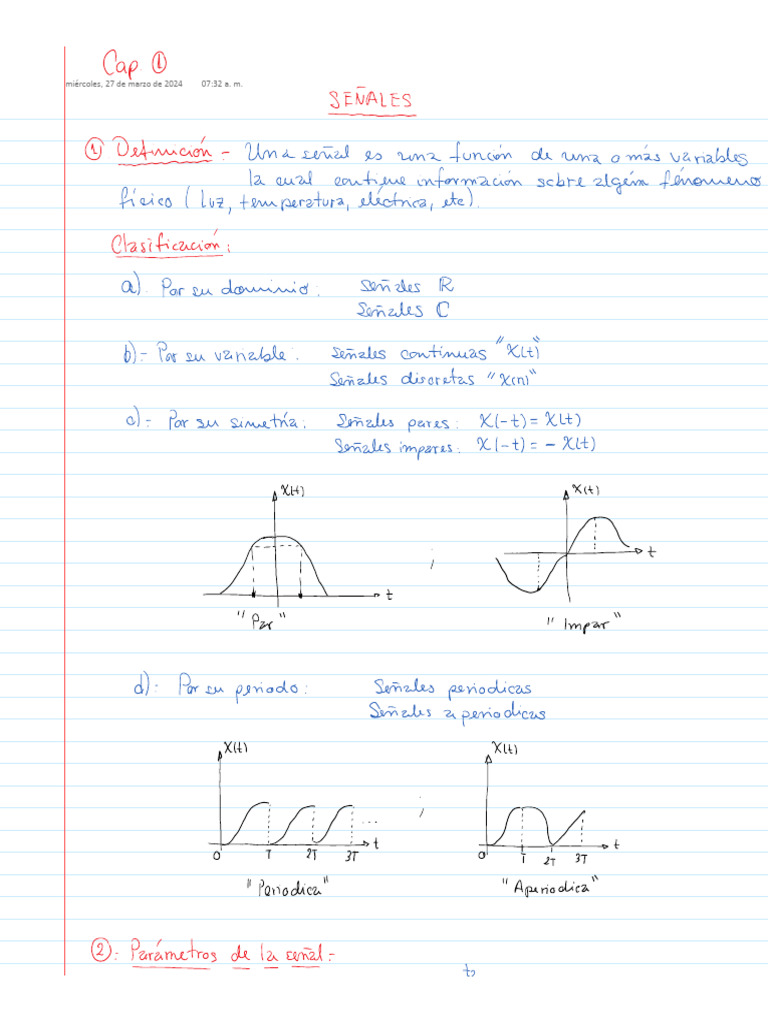 Cap. ①
miércoles, 27 de marzo de 2024 07:32 a. m.
SEÑALES
① Definición.- Una señal es una función de una o más variables
la cual contiene información sobre algún fenómeno
físico (luz, temperatura, eléctrica, etc).
Clasificación:
a). Por su dominio: Señales ℝ
Señales ℂ
b).- Por su variable: Señales continuas "X(t)"
Señales discretas "X(n)"
c).- Por su simetría: Señales pares: X(-t) = X(t)
Señales impares: X(-t) = - X(t)
X(t) X(t)
t ; t
"Par" "Impar"
d).- Por su periodo: Señales periodicas
Señales aperiodicas
X(t) X(t)
... ; 
0 T 2T 3T t 0 T 2T 3T t
"Periodica" "Aperiodica"
②. Parámetros de la señal.-
t₂